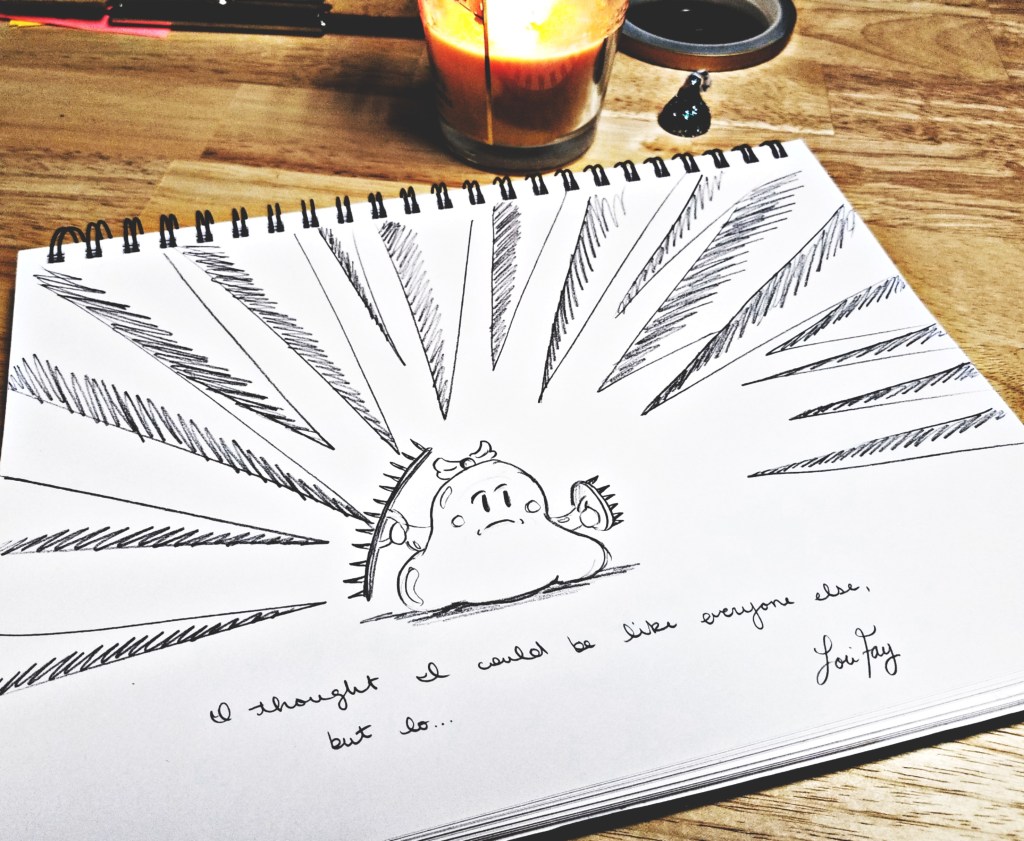 I thought I could be like everyone else,
but lo...
Lori Fay